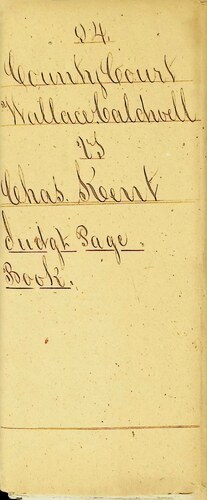 24.
County Court
Wallace Caldwell
vs
Chas. Kent
Judgt. Page.
Book.